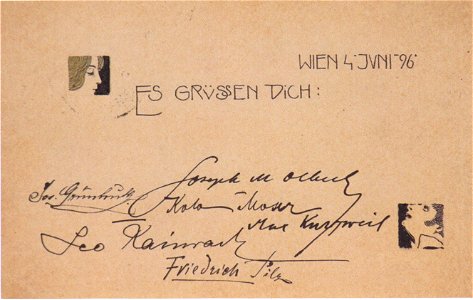 WIEN 4·JVNI·96·
ES GRÜSSEN DICH:
Joseph M Olbrich
Jos.
Kolo Moser
Max Kurzweil
Leo Kainradl
Friedrich Pilz